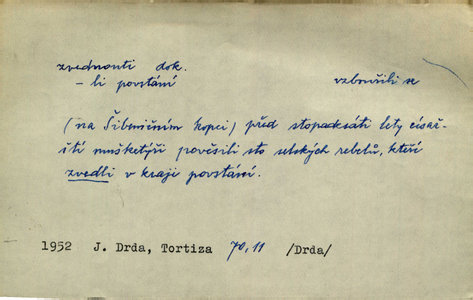 zvednouti dok.
– li povstání vzbouřili se
(na Šibeničním kopci) před stopadesáti lety císař-
ští mušketýři pověsili sto selských rebelů, kteří
zvedli v kraji povstání.
1952 J. Drda, Tortiza 70,11 /Drda/